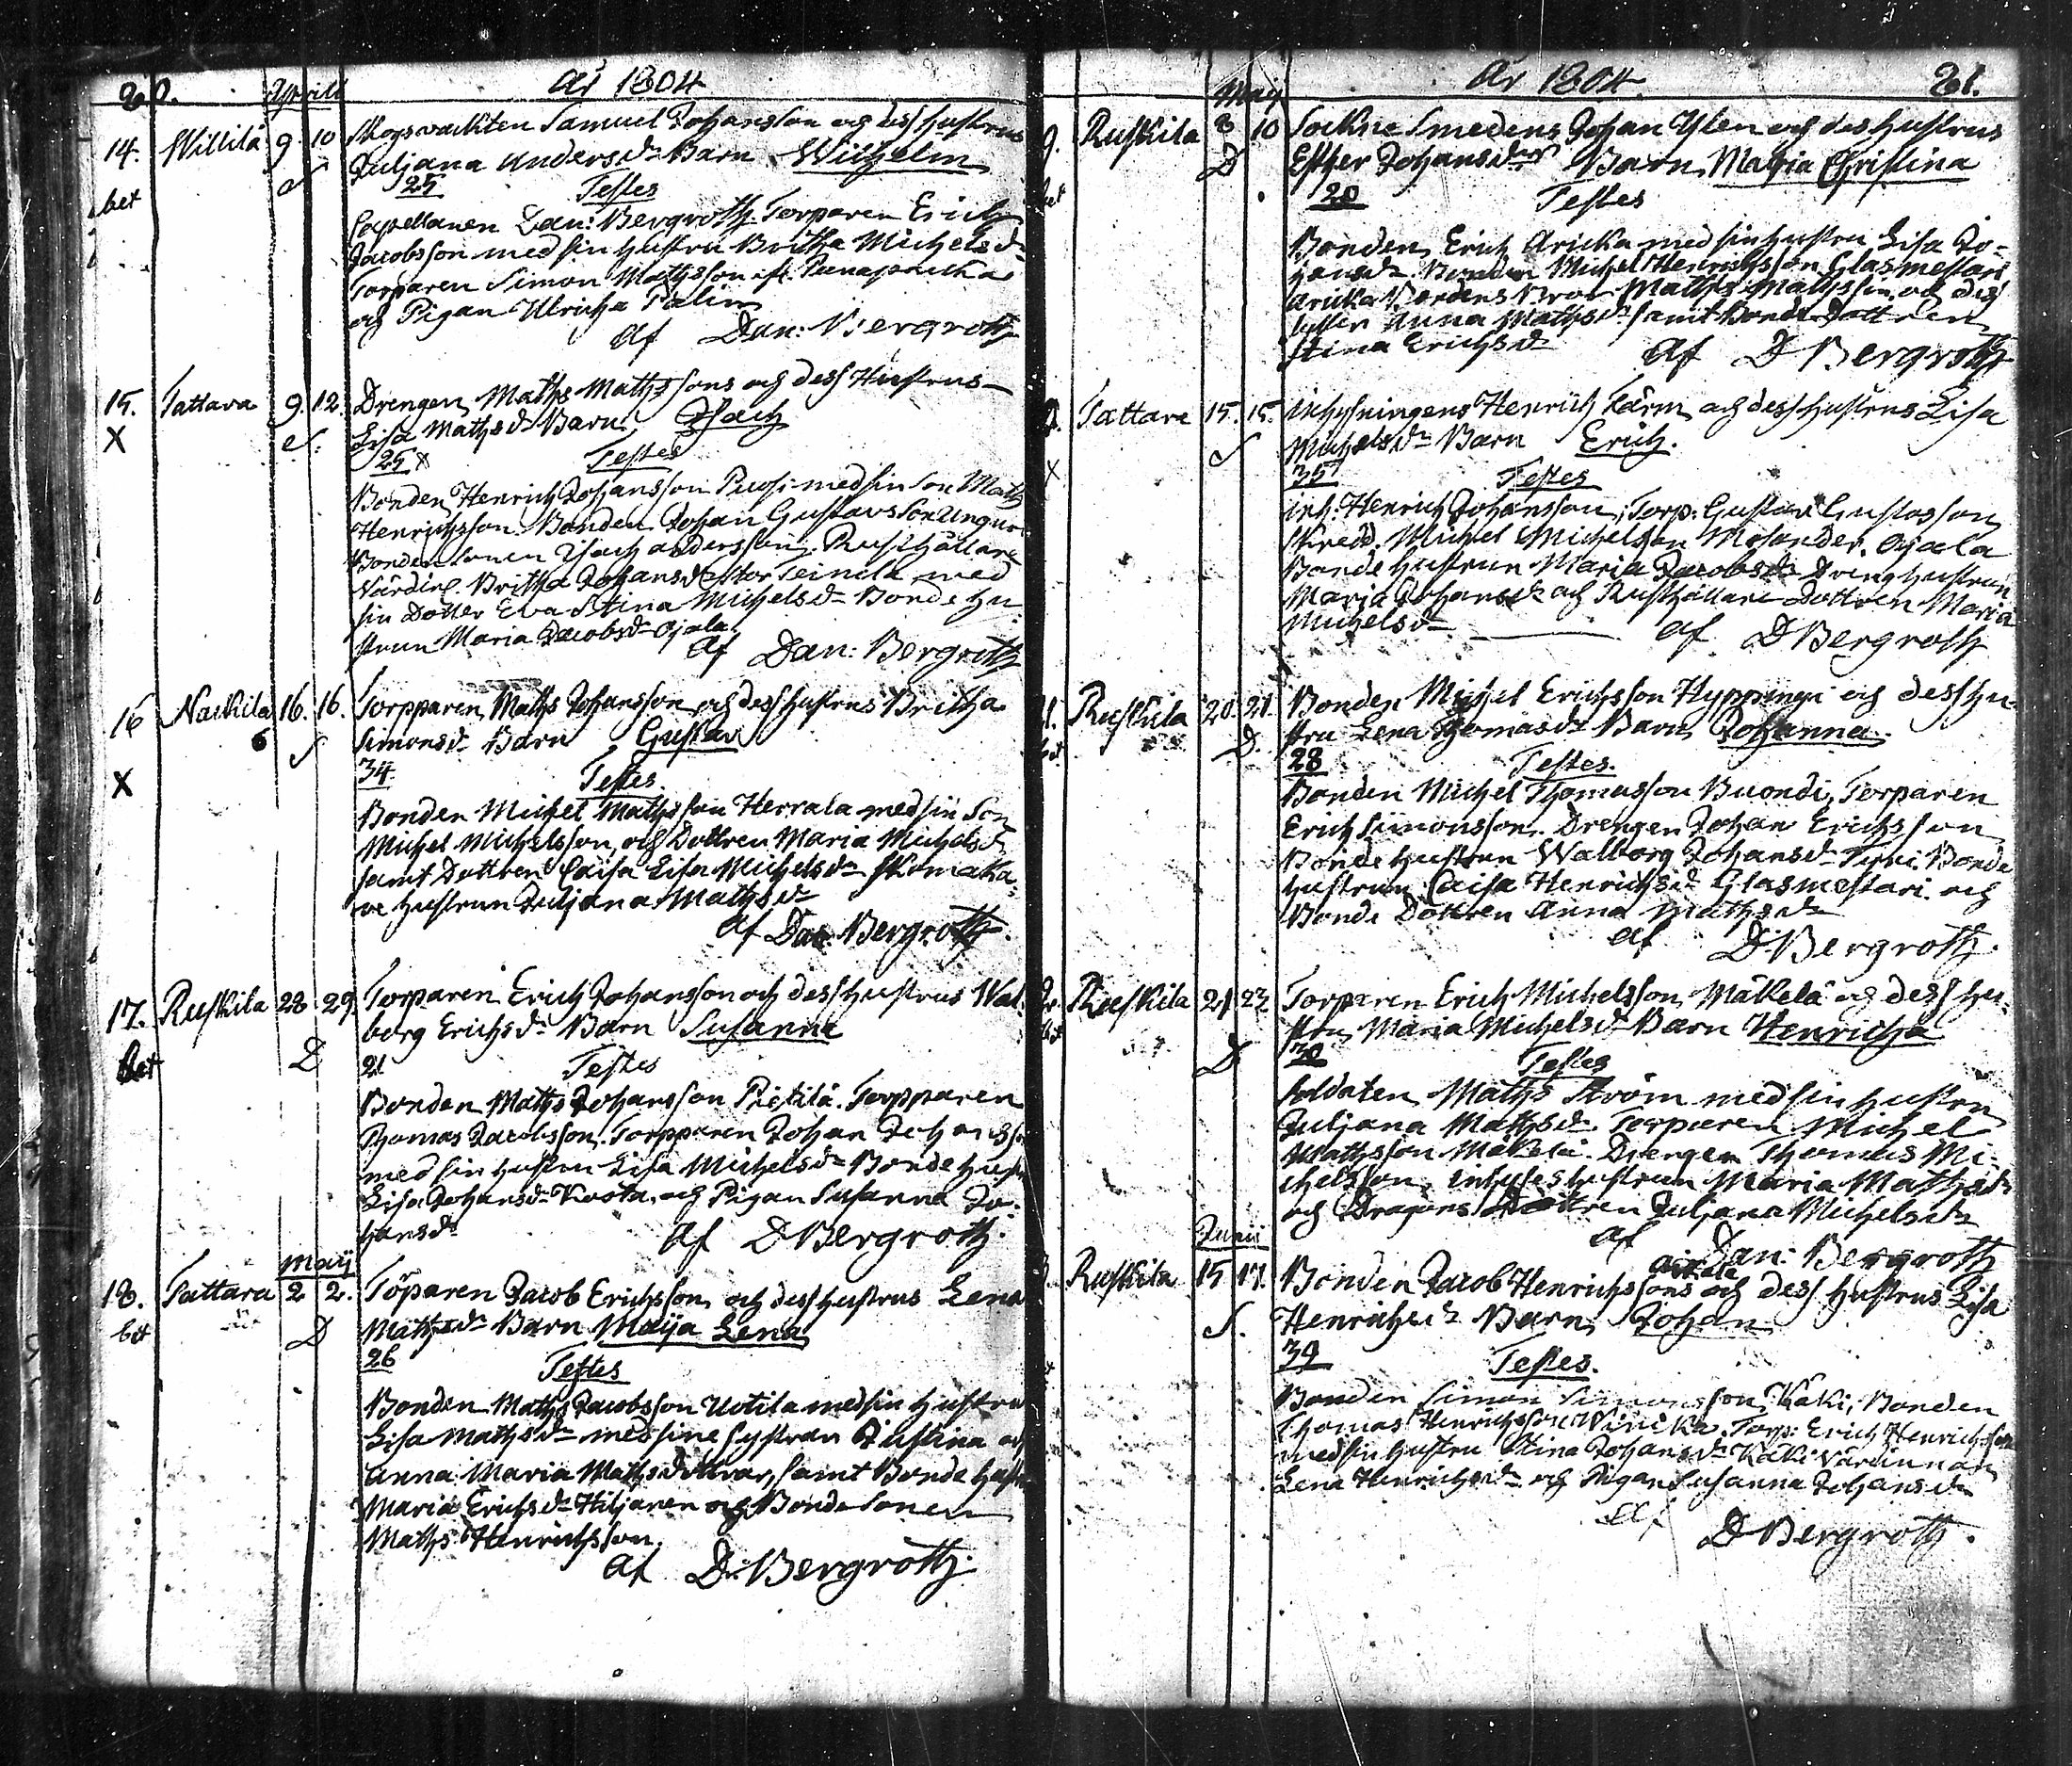 20. Aprill År 1804
14. Willilä 9. 10 Skogsvackten Samuel Johansson och des hustrus
Juljana Andersdr Barn Wilhelm
bet 25 Testes
Capellanen Dan: Bergroth. Torparen Erich
Jacobsson med sin hustru Britha Michelsdr
Torparen Simon Mathsson
och Pigan Ulricha Palin
af Dan: Bergroth
15. Tattara 9. 12. Drengen Maths Mathssons och dess Hustrus
X Lisa Mathsdr Barn Isach
25 x Testes
Bonden Henrich Johansson med sin Son Math
Henrichsson. Bonden Johan Gustavsson
Bondesonen Isach Andersson. Rusthållare
Värdin. Britha Johansdr Stor Teinilä med
sin Dotter Eva Stina Michelsdr Bonde hu
strun Maria Jacobsdr Ojala
af Dan: Bergroth
16 Naukila 16. 16. Torpparen Maths Johansson och des hustrus Britha
6 S Simonsdr Barn Gustav
34
X Testes
Bonden Michel Mathsson Herrala med sin Son
Michel Michelsson, och Dottren Maria Michelsd
samt Dottren Caisa Lisa Michelsdr Skomaka-
re hustrun Juljana Mathsdr
af Dan: Bergroth.
17. Ruskila 28 29. Torparen Erich Johansson och des hustrus Wal-
borg Erichsdr Barn Susanna
bet D 21 Testes
Bonden Maths Johansson Pietilä. Torpparen
Thomas Jacobsson. Torpparen Johan Johansso
med sin hustru Lisa Michelsdr Bonde hustr
Lisa Johansdr Kosta, och Pigan Susanna Jo-
hansdr
af D Bergroth.
Maij
18. Tattara 2 2. Torparen Jacob Erichsson och des hustrus Lena
bet D Mathsdr Barn Maija Lena
26
Testes
Bonden Maths Jacobsson Uotila med sin hustru
Lisa Mathsdr med sine systrar Justina och
Anna Maria Mathsdöttrar, samt Bonde hustr
Maria Erichsdr Hiljanen och Bonde Sonen
Maths Henrichsson.
af D: Bergroth.
Maij År 1804. 21.
9. Ruskila 8 10 Sockne Smedens Johan Ylen och des hustrus
D Esther Johansdr Barn Maija Christina
bet 20 Testes
Bonden Erich Aricka med sin hustru Lisa Jo-
hansdr. Bonden Michel Henrichsson Glasmestari
Aricka Bondens Bror Maths Mathsson och des
syster Anna Mathsdr samt Bonde Dottren
Stina Erichsdr af D Bergroth
Tattara 15. 15. Inhysningens Henrich Färm och des hustrus Lisa
X S Michelsdr Barn Erich.
35 Testes
inh: Henrich Johansson, Torp: Gustav Gustafsson
Skredd. Michel Michelsson Melander. Ojala
Bonde hustrun Maria Jacobsdr Dreng hustrun
Maria Johansdr och Rusthållare Dottren Maria
Michelsdr af D Bergroth
Ruskila 20. 21. Bonden Michel Erichsson Hyppingi och dess hu-
bet D. stru Lena Thomasdr Barn Johanna.
28 Testes.
Bonden Michel Thomasson Buondi, Torparen
Erich Simonsson. Drengen Johan Erichsson
Bonde hustrun Walborg Johansdr Bonde
hustrun Caisa Henrichsdr Glasmestari och
Bonde Dottren Anna Mathsdr
af D: Bergroth.
Ruskila 21 23 Torparen Erich Michelsson Mäkelä och dess hu-
bet D stru Maria Michelsdr Barn Henricha
30 Testes
Soldaten Maths Ström med sin hustru
Juljana Mathsdr. Torparen Michel
Mathsson Mäkelä. Drengen Thomas Mi-
chelsson, inhyses hustrun Maria Mathsdr
och Dragons Dottren Juljana Michelsdr
af Dan: Bergroth
Junii
Ruskila 15 17. Bonden Jacob Henrichssons och dess hustrus Lisa
S. Henrichsdr Barn Johan
39 Testes.
Bonden Simon Simonsson Käki, Bonden
Thomas Henrichsson Torp: Erich Henrichsson
med sin hustru Stina Johansdr Käki Värdinnan
Lena Henrichsdr och Pigan Susanna Johansdr
af D Bergroth.